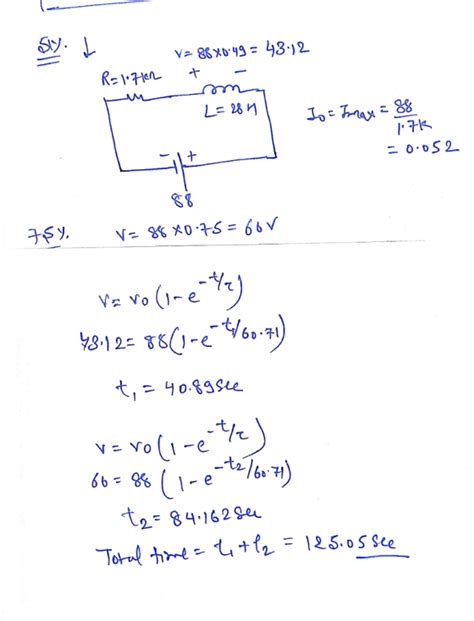 51%. ↓
V = 88 × 0.49 = 43.12
R = 1.7kΩ + -
L = 28 H
I₀ = Imax = 88/1.7k
= 0.052
- +
88
75%. V = 88 × 0.75 = 66V
V = V0 (1 - e^-t/τ)
43.12 = 88 (1 - e^-t1/60.71)
t1 = 40.89 Sec
V = V0 (1 - e^-t/τ)
66 = 88 (1 - e^-t2/60.71)
t2 = 84.162 Sec
Total time = t1 + t2 = 125.05 Sec